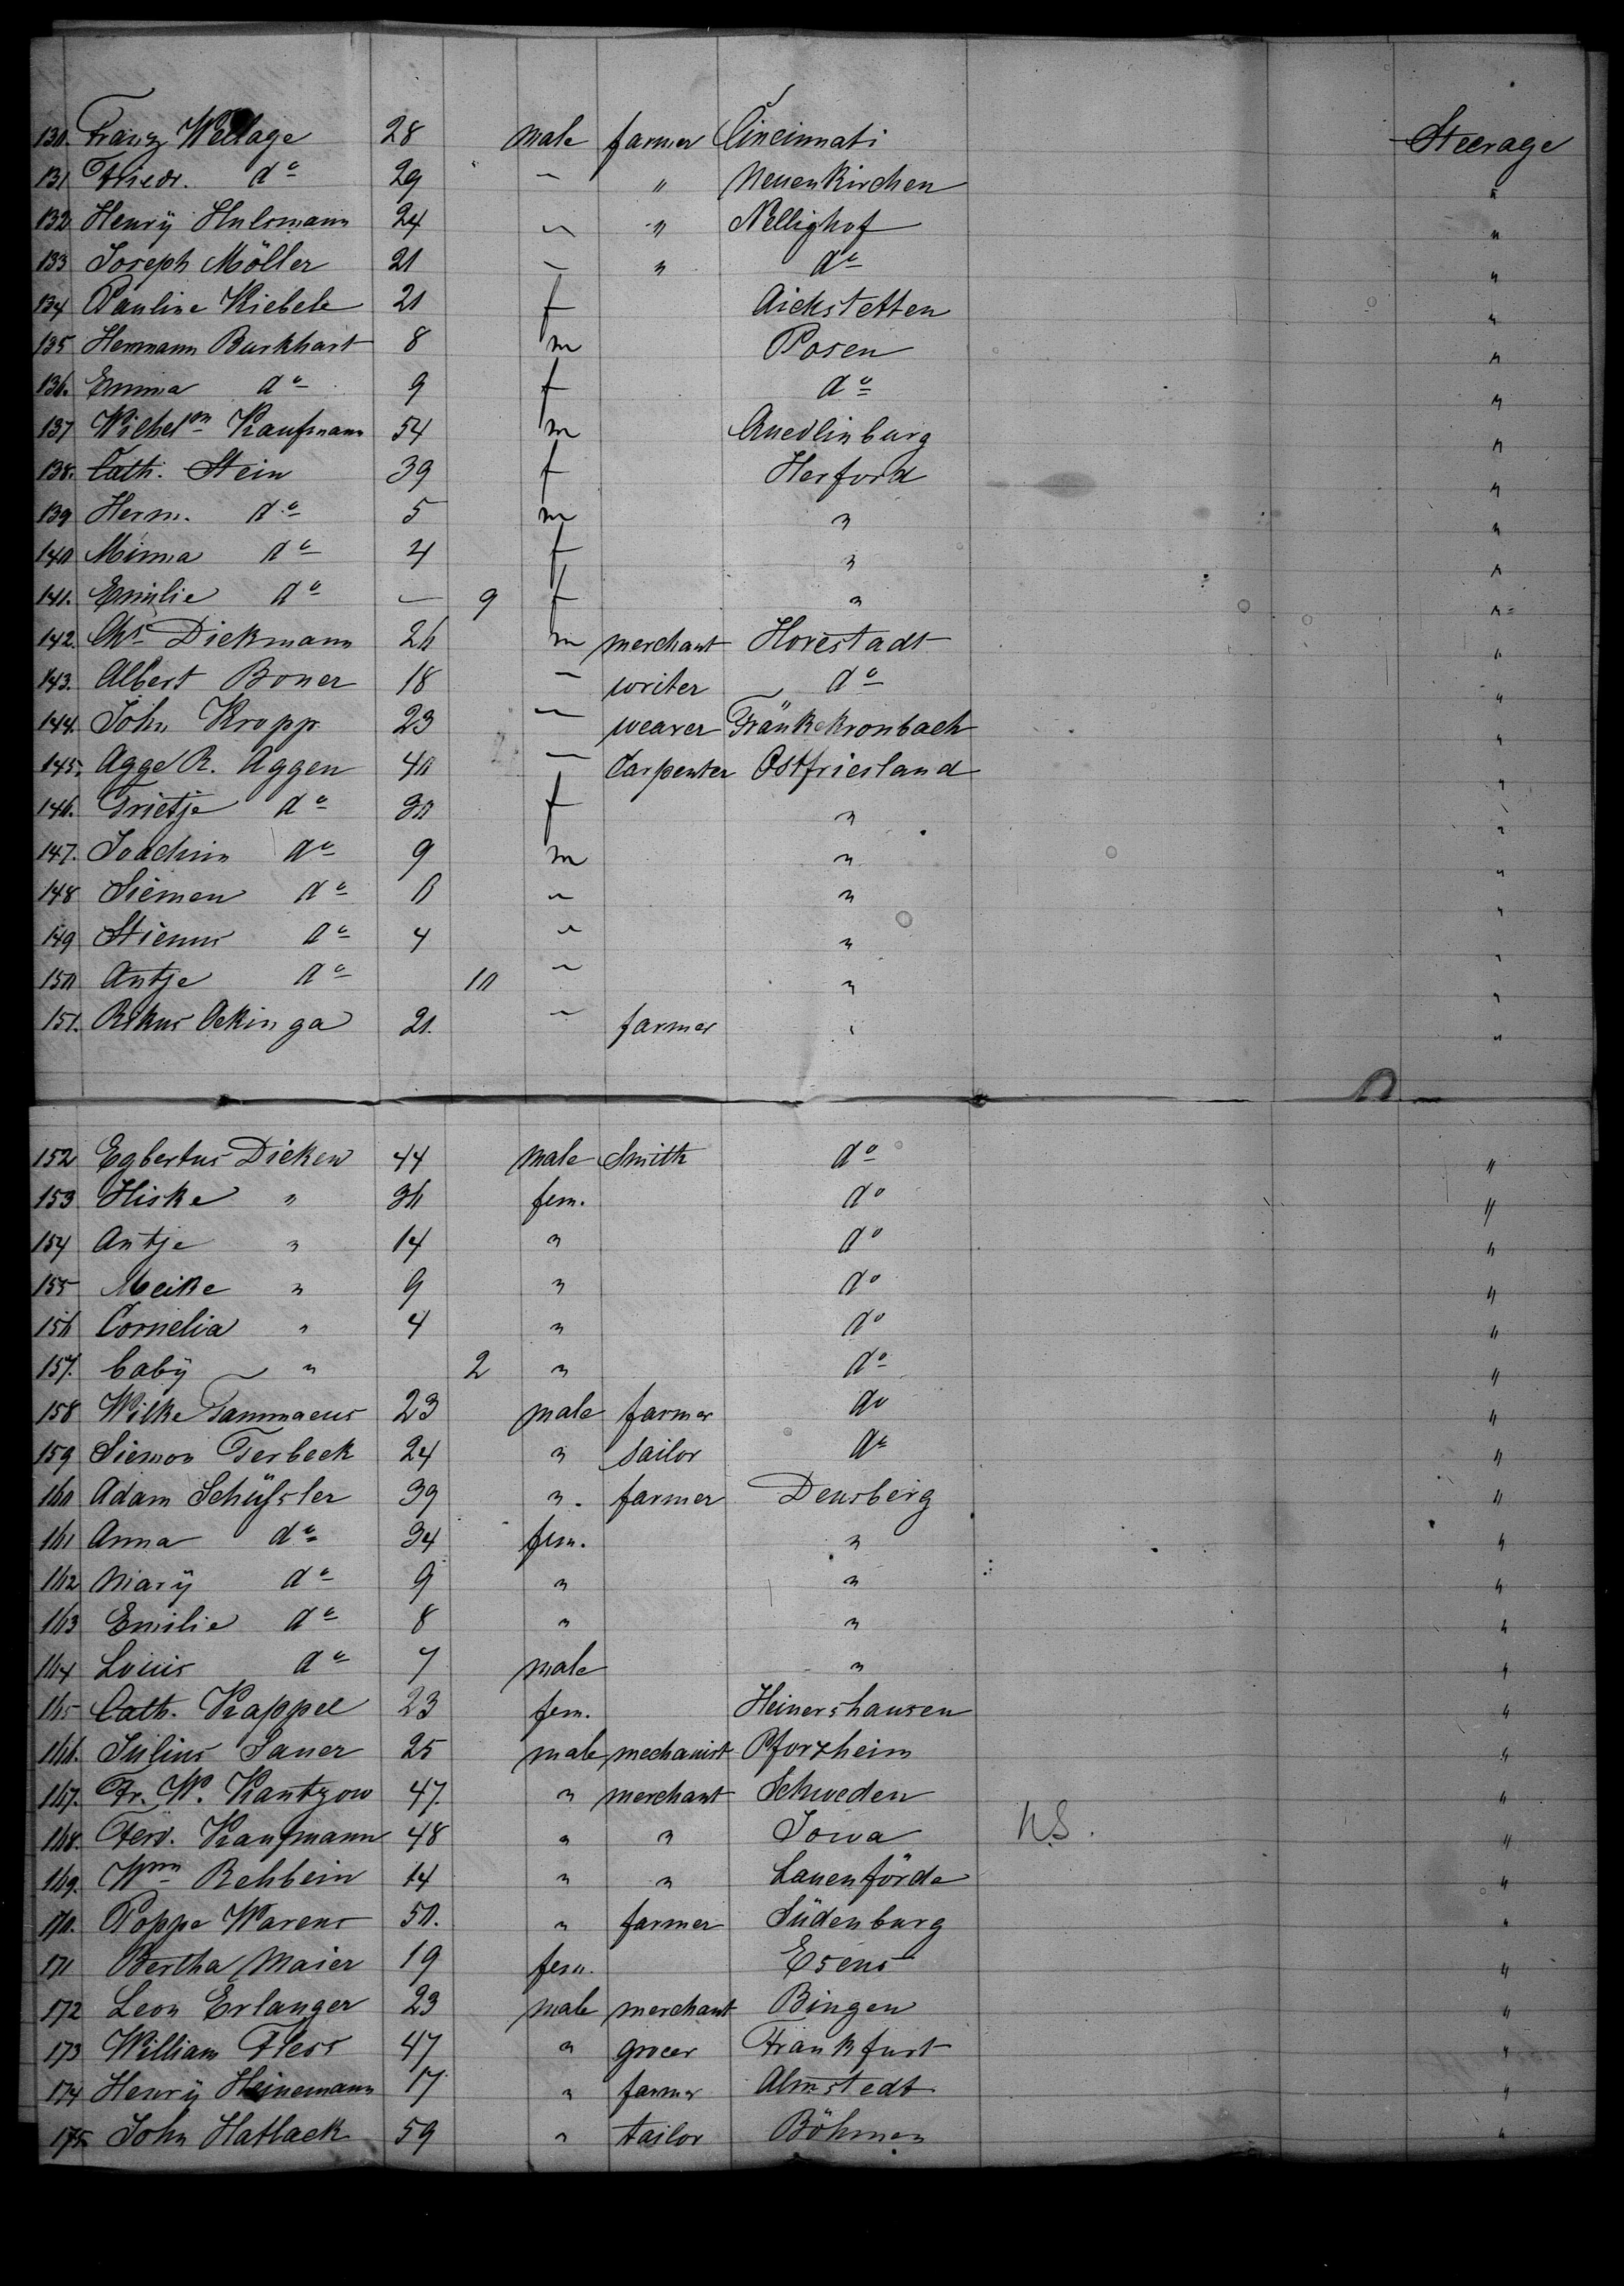 130. Franz Wellage 28 male farmer Cincinnati Steerage
131 Friedr. do 29 " " Neuenkirchen "
132 Henrÿ Hulsmann 24 " " Nellighof "
133 Joseph Möller 21 " " do "
134 Pauline Kiebele 21 f Aichstetten "
135 Hermann Burkhart 8 m Posen "
136. Emma do 9 f do "
137 Wilhelm Kaufmann 54 m Quedlinburg "
138. Cath. Stein 39 f Herford "
139 Herm. do 5 m " "
140 Minna do 4 f " "
141. Emilie do — 9 f " "
142. Chs Diekmann 26 m merchant Horestadt "
143. Albert Boner 18 " writer do "
144. John Kropp 23 " weaver Fränk. Kronbach "
145. Agge R. Aggen 40 " Carpenter Ostfriesland "
146. Trietje do 30 f " "
147. Joachim do 9 m " "
148 Siemen do 6 " " "
149 Stienus do 4 " " "
150 Antje do 10 " " "
151. Rskus Ockinga 21. " farmer " "
152 Egbertus Dieken 44 male Smith do "
153 Hiske " 36 fem. do "
154 Antje " 14 " do "
155 Meike " 9 " do "
156 Cornelia " 4 " do "
157. baby " 2 " do "
158 Wilke Tammaeus 23 male farmer do "
159 Siemon Terbeek 24 " sailor do "
160 Adam Schüssler 39 " farmer Densberg "
161 Anna do 34 fem. " "
162 Marÿ do 9 " " "
163 Emilie do 8 " " "
164 Louis do 7 male " "
165 Cath. Kappel 23 fem. Heinershausen "
166. Julius Sauer 25 male mechanist Pforzheim "
167. Fr. W. Kantzow 47. " merchant Schweden "
168. Ferd. Kaufmann 48 " " Iowa U.S. "
169. Wm Rehbein 14 " " Lauenförde "
170. Poppe Warens 50. " farmer Südenburg "
171 Bertha Maier 19 fem. Esens "
172 Leon Erlanger 23 male merchant Bingen "
173 William Fless 47 " grocer Frankfurt "
174 Henrÿ Heinemann 17 " farmer Almstedt "
175 John Hatlack 59 " tailor Böhmen "